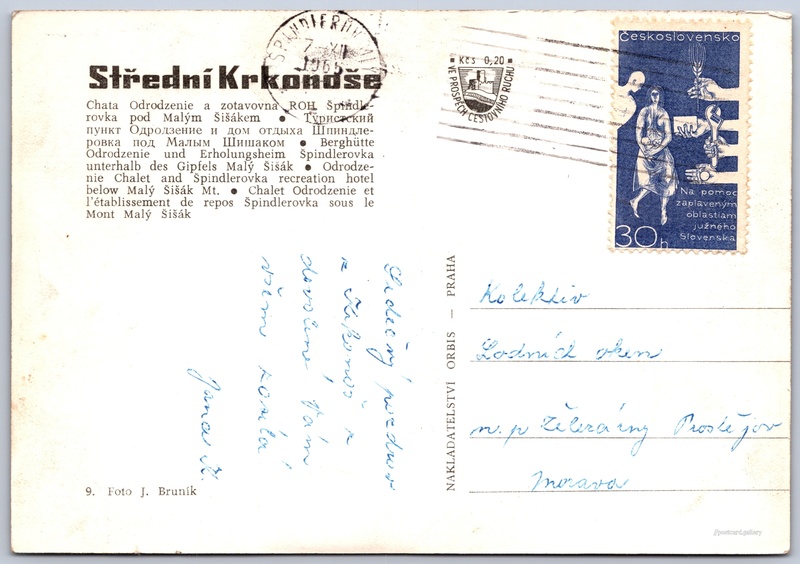 Střední Krkonoše
Chata Odrodzenie a zotavovna ROH Špindle-
rovka pod Malým Šišákem ● Туристский
пункт Одродзение и дом отдыха Шпиндле-
ровка под Малым Шишаком ● Berghütte
Odrodzenie und Erholungsheim Špindlerovka
unterhalb des Gipfels Malý Šišák ● Odrodze-
nie Chalet and Špindlerovka recreation hotel
below Malý Šišák Mt. ● Chalet Odrodzenie et
l'établissement de repos Špindlerovka sous le
Mont Malý Šišák
Kčs 0,20
VE PROSPĚCH CESTOVNÍHO RUCHU
Československo
Na pomoc
zaplaveným
oblastiam
južného
Slovenska
30h
Srdečný pozdrav
z Krkonoš z
dovolené Vám
všem zasílá
Jana
NAKLADATELSTVÍ ORBIS — PRAHA
Kolektiv
Lodních oken
n. p. Železárny Prostějov
Morava
9. Foto J. Bruník
postcard.gallery